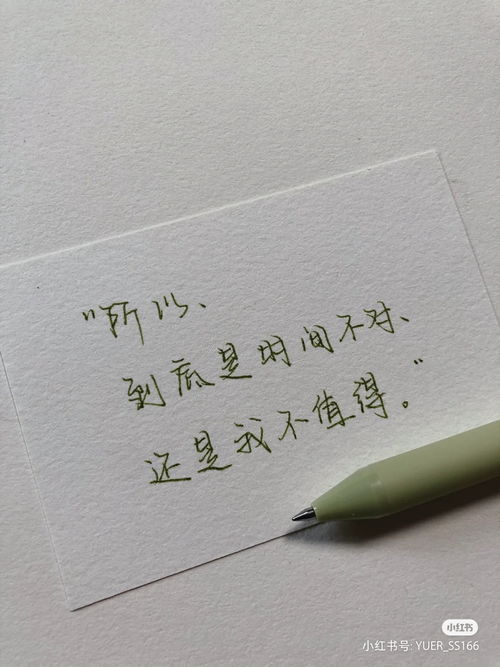 "所以、
到底是时间不对、
还是我不值得。"
小红书
小红书号: YUER_SS166